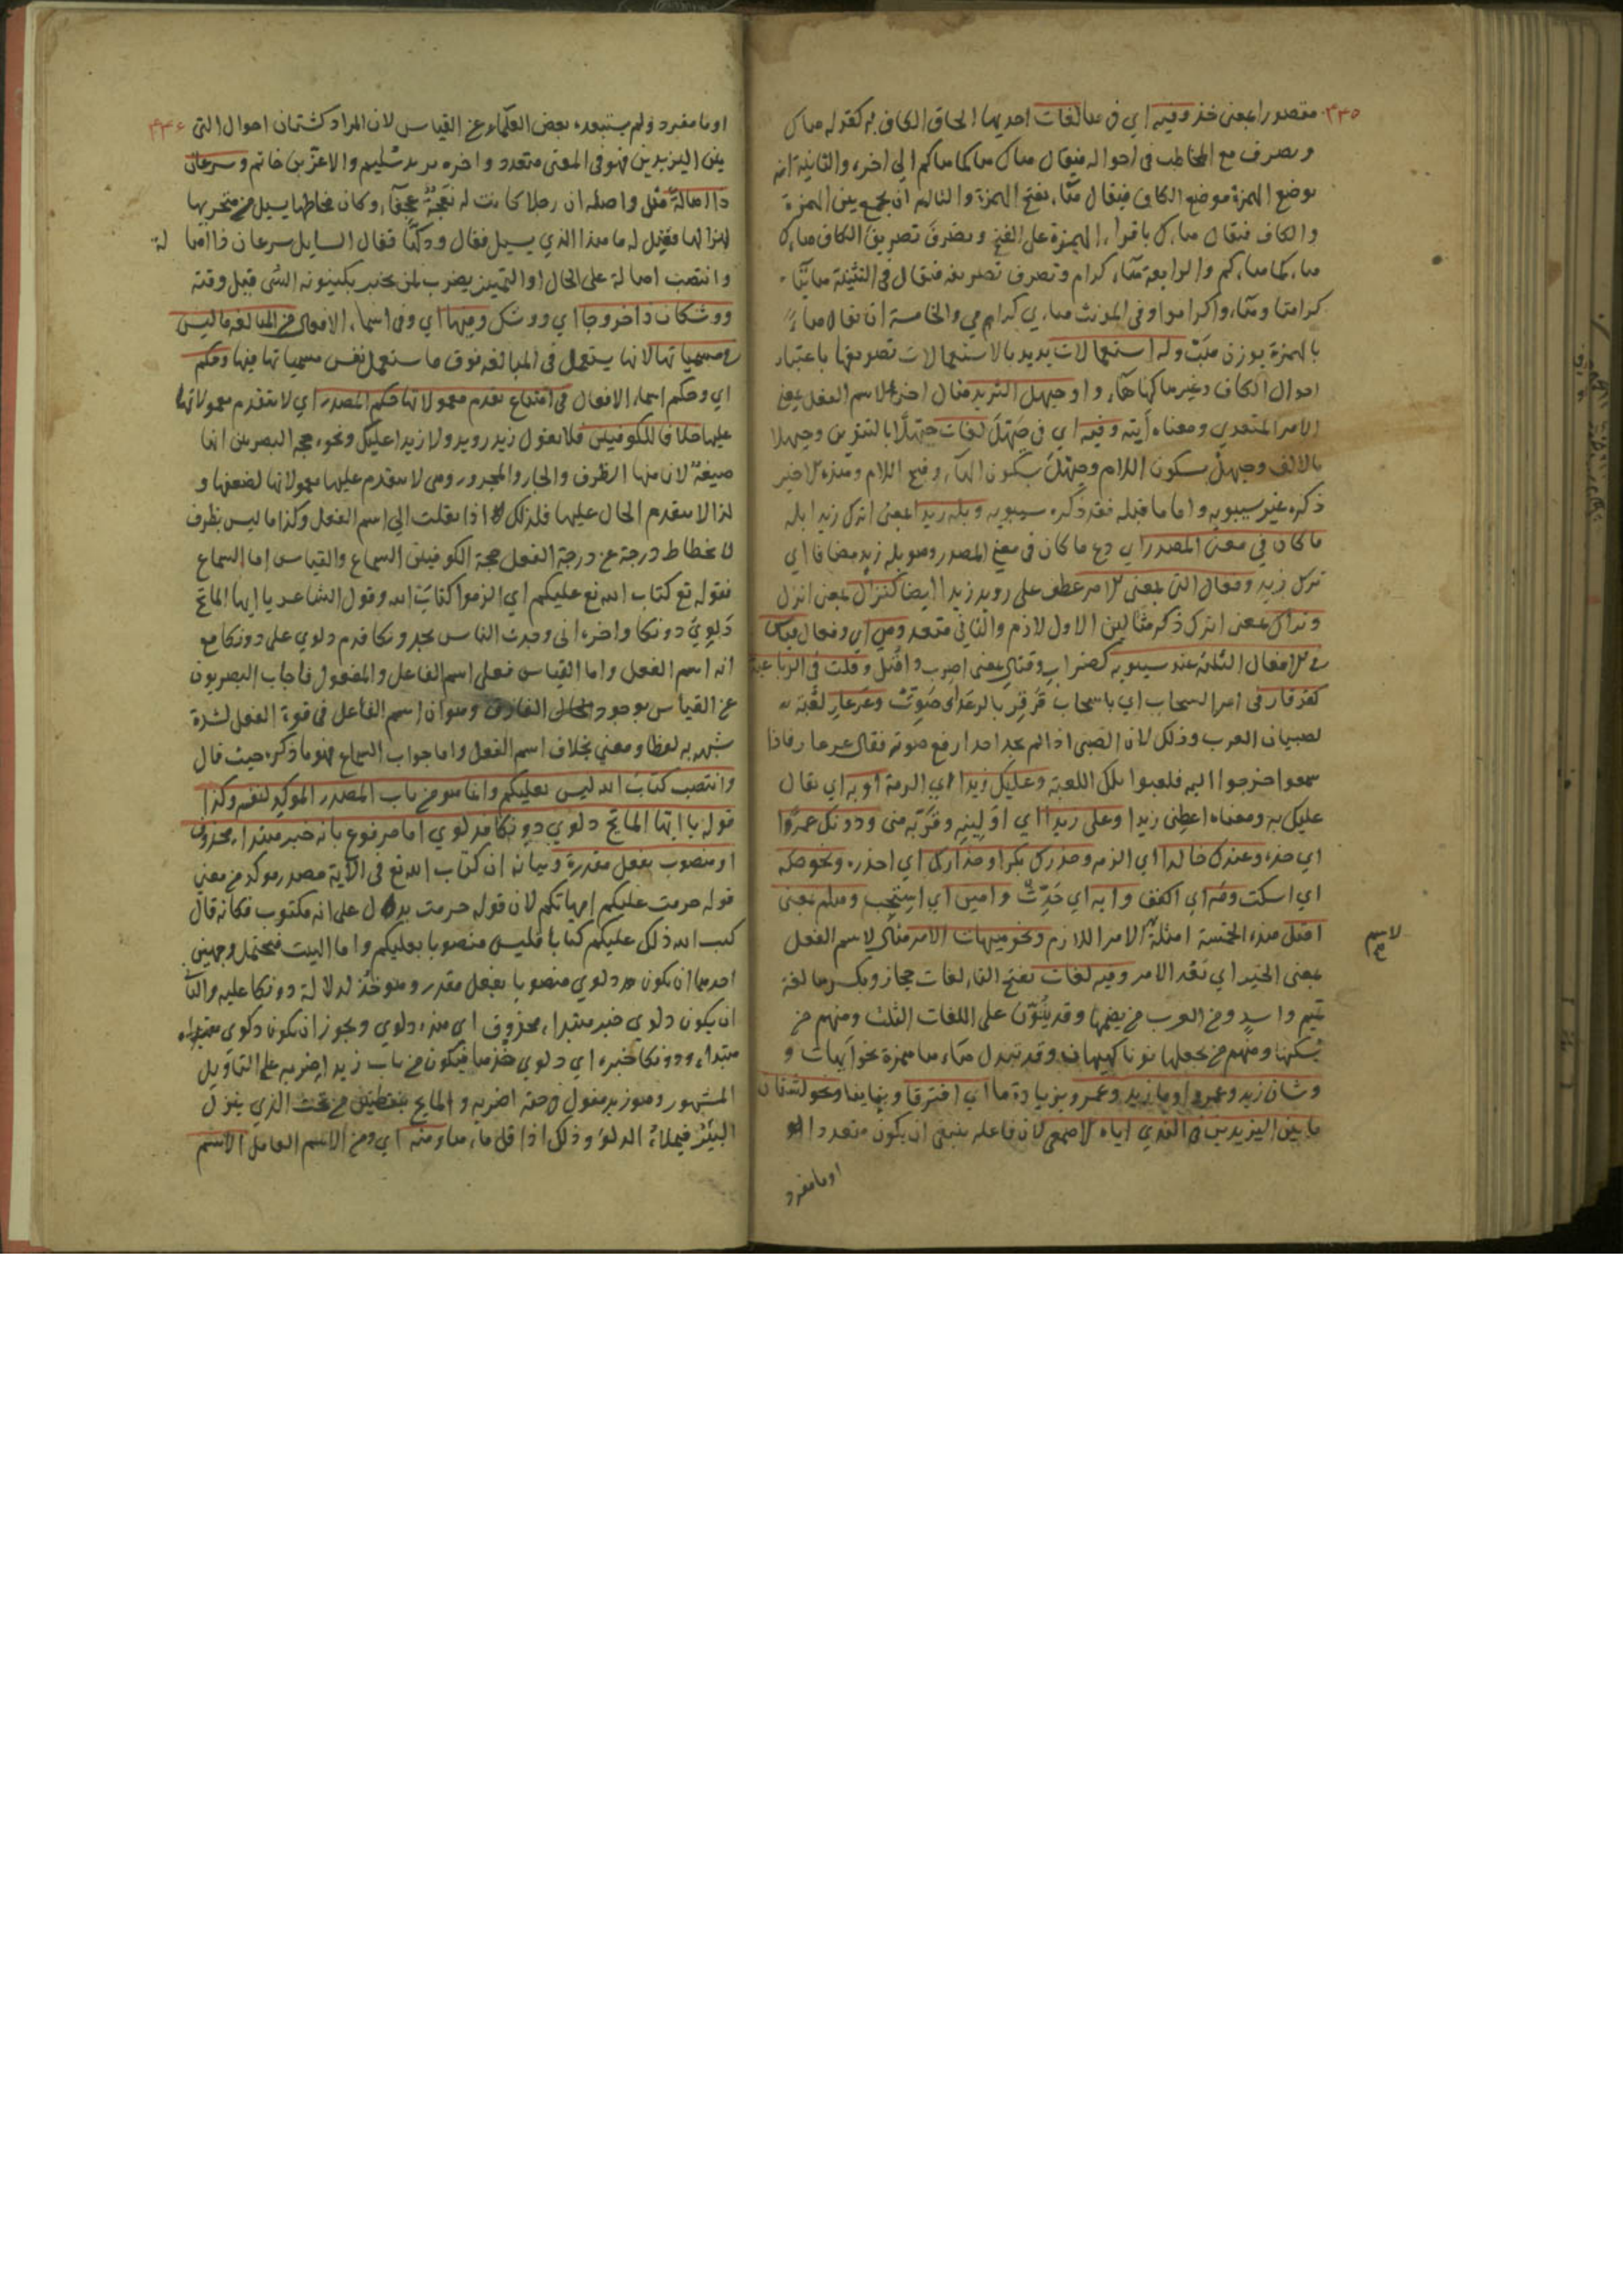 ٢٣٥
مقصورا بمعنى خذ وفيه اي في ها لغات احديها الحاق الكاف به كقوله هاك
ويصرف مع المخاطب في احواله فيقال هاك هاكما هاكم الى اخره والثانية انه
يوضع الهمزة موضع الكاف فيقال هاء بفتح الهمزة والثالثة ان يجمع بين الهمزة
والكاف فيقال هاءك باقراء الهمزة على الفتح ويصرف تصريف الكاف هاءك
هاءكما هاءكم والرابعة هاء كرام وتصرف تصريفه فيقال في التثنية هائيا
كراميا وهاءوا كراموا وفي المونث هاءي كرامي والخامسة ان يقال هاء
بالهمزة بوزن هب وله استعمالات يديد بالاستعمالات تصريفها باعتبار
احوال الكاف وغيرها كهاهاء واو حيهل الثريد مثال اخر لاسم الفعل بمعنى
الامر المتعدي ومعناه أيته وفيه اي في حيهل لغات حيهلا بالتنوين وحيهلا
بالالف وحيهل بسكون اللام وحيهل بسكون الهاء وفتح اللام وهذه الاخير
ذكره غير سيبويه واما ما قبله فقد ذكره سيبويه وبله زيدا بمعنى اترك زيدا بله
ما كان في معنى المصدر اي دع ما كان في معنى المصدر وهو بله زيد مضافا اي
ترك زيد وفعال التي بمعنى الامر عطف على رويد زيدا ايضا كنزال بمعنى انزل
وتراك بمعنى اترك ذكر مثالين الاول لازم والثاني متعد وهي اي وفعال قياس
في الافعال الثلاثة عند سيبويه كضراب وقتال بمعنى اضرب واقتل وقلت في الرباعية
كقرقار في امر السحاب اي يا سحاب قرقر بالرعد اي صوت وعرعار لعبة
لصبيان العرب وذلك لان الصبي اذا لم يجد احدا رفع صوته فقال عرعار فاذا
سمعوا خرجوا اليه فلعبوا تلك اللعبة وعليك زيدا اي الزمه او به اي يقال
عليك به ومعناه اعطني زيدا وعلى زيدا اي اولينه وقربه مني ودونك عمروا
اي خذه وعندك خالدا اي الزمه وحذرك بكرا وحذارك اي احذره ونحو صه
اي اسكت ومه اي اكفف وايه اي حدث وامين اي استجب وهلم بمعنى
اقبل هذه الخمسة امثلة الامر اللازم ونحو هيهات الامر مثال لاسم الفعل
لاسم
صح
بمعنى الخبر اي بعد الامر وفيه لغات بفتح التاء لغات حجاز وبكسرها لغة
تميم واسد ومن العرب من يضمها وقد ينون على اللغات الثلث ومنهم من
يسكنها ومنهم من يجعلها نونا كهيهان وقد تبدل هاءها همزة نحو ايهات و
وشتان زيد وعمرو وما زيد وعمرو بزيادة ما اي افترقا وتباينا ونحو لشتان
ما بين اليزيدين الذي اباه الاصمعي لان فاعله ينبغي ان يكون متعددا
او ما مفرد
٢٣٦
او ما مفرد ولم يستبعده بعض العلماء عن القياس لان المراد كشتمان احوال التي
بين اليزيدين فهو في المعنى متعدد واخره يزيد سليم والاغر بن حاتم وسرعان
ذا اهالة مثل واصله ان رجلا كانت له نعجة عجفاء وكان مخاطها يسيل من منخريها
لهزالها فقيل له ما هذا الذي يسيل فقال ودكها فقال السايل سرعان ذا اها لة
وانتصب اهالة على الحال او التميز يضرب لمن يخبر بكينونه الشي قبل وقته
ووشكان ذا خروجا اي ووشك ومنها اي وفي اسماء الافعال من المبالغة ما ليس
في مسمياتها لانها يستعمل في المبالغه فوق ما يستعمل نفس مسمياتها فيها وحكم
اي وحكم اسماء الافعال في امتناع تقدم معمولاتها حكم المصدر اي لا يتقدم معمولاتها
عليها خلافا للكوفيين فلا تقول زيد رويد ولا زيدا عليك ونحوه حجه البصريين انها
ضيغة لان منها الظرف والجار والمجرور وهي لا يتقدم عليها معمولاتها لضعفها و
لذا لا يتقدم الحال عليها فلذلك اذا نقلت الى اسم الفعل وكذا ما ليس بظرف
لانحطاط درجة عن درجة الفعل حجة الكوفيين السماع والقياس اما السماع
فقوله تع كتاب الله تع عليكم اي الزموا كتاب الله وقول الشاعر يا ايها المايح
دلوي دونكا واخره اني وجدت الناس يحمدونكا قدم دلوي على دونكا مع
انه اسم الفعل واما القياس فعلى اسم الفاعل والمفعول فاجاب البصريون
عن القياس بوجود الفارق وهو ان اسم الفاعل في قوة الفعل لشدة
شبهه به لفظا ومعنى بخلاف اسم الفعل واما جواب السماع فهو ما ذكره حيث قال
وانتصب كتاب الله ليس بعليكم وانما هو من باب المصدر الموكد لنفسه وكذا
قوله يا ايها المايح دلوي دونكا فدلوي اما مرفوع بانه خبر مبتداء محذوف
او منصوب بفعل مقدرة وبيانه ان كتاب الله تع في الآية مصدر موكد من معنى
قوله حرمت عليكم امهاتكم لان قوله حرمت يدل على انه مكتوب فكانه قال
كتب الله ذلك عليكم كتابا فليس منصوبا بعليكم واما البيت فيحتمل وجهين
احدهما ان يكون دلوي منصوبا بفعل مقدر وهو خذ لدلالة دونكا عليه والثا
ان يكون دلوي خبر مبتداء محذوف اي هذه دلوي ويجوز ان يكون دلوي
مبتداء ودونكا خبره اي دلوي خذها فيكون من باب زيد اضربه على التاويل
المشهور وهو زيد مقول في حقه اضربه والمايح بنقطتين من تحت الذي ينزل
البئر فيملاء الدلو وذلك اذا قل ماءها ومنه اي ومن الاسم العامل الاسم